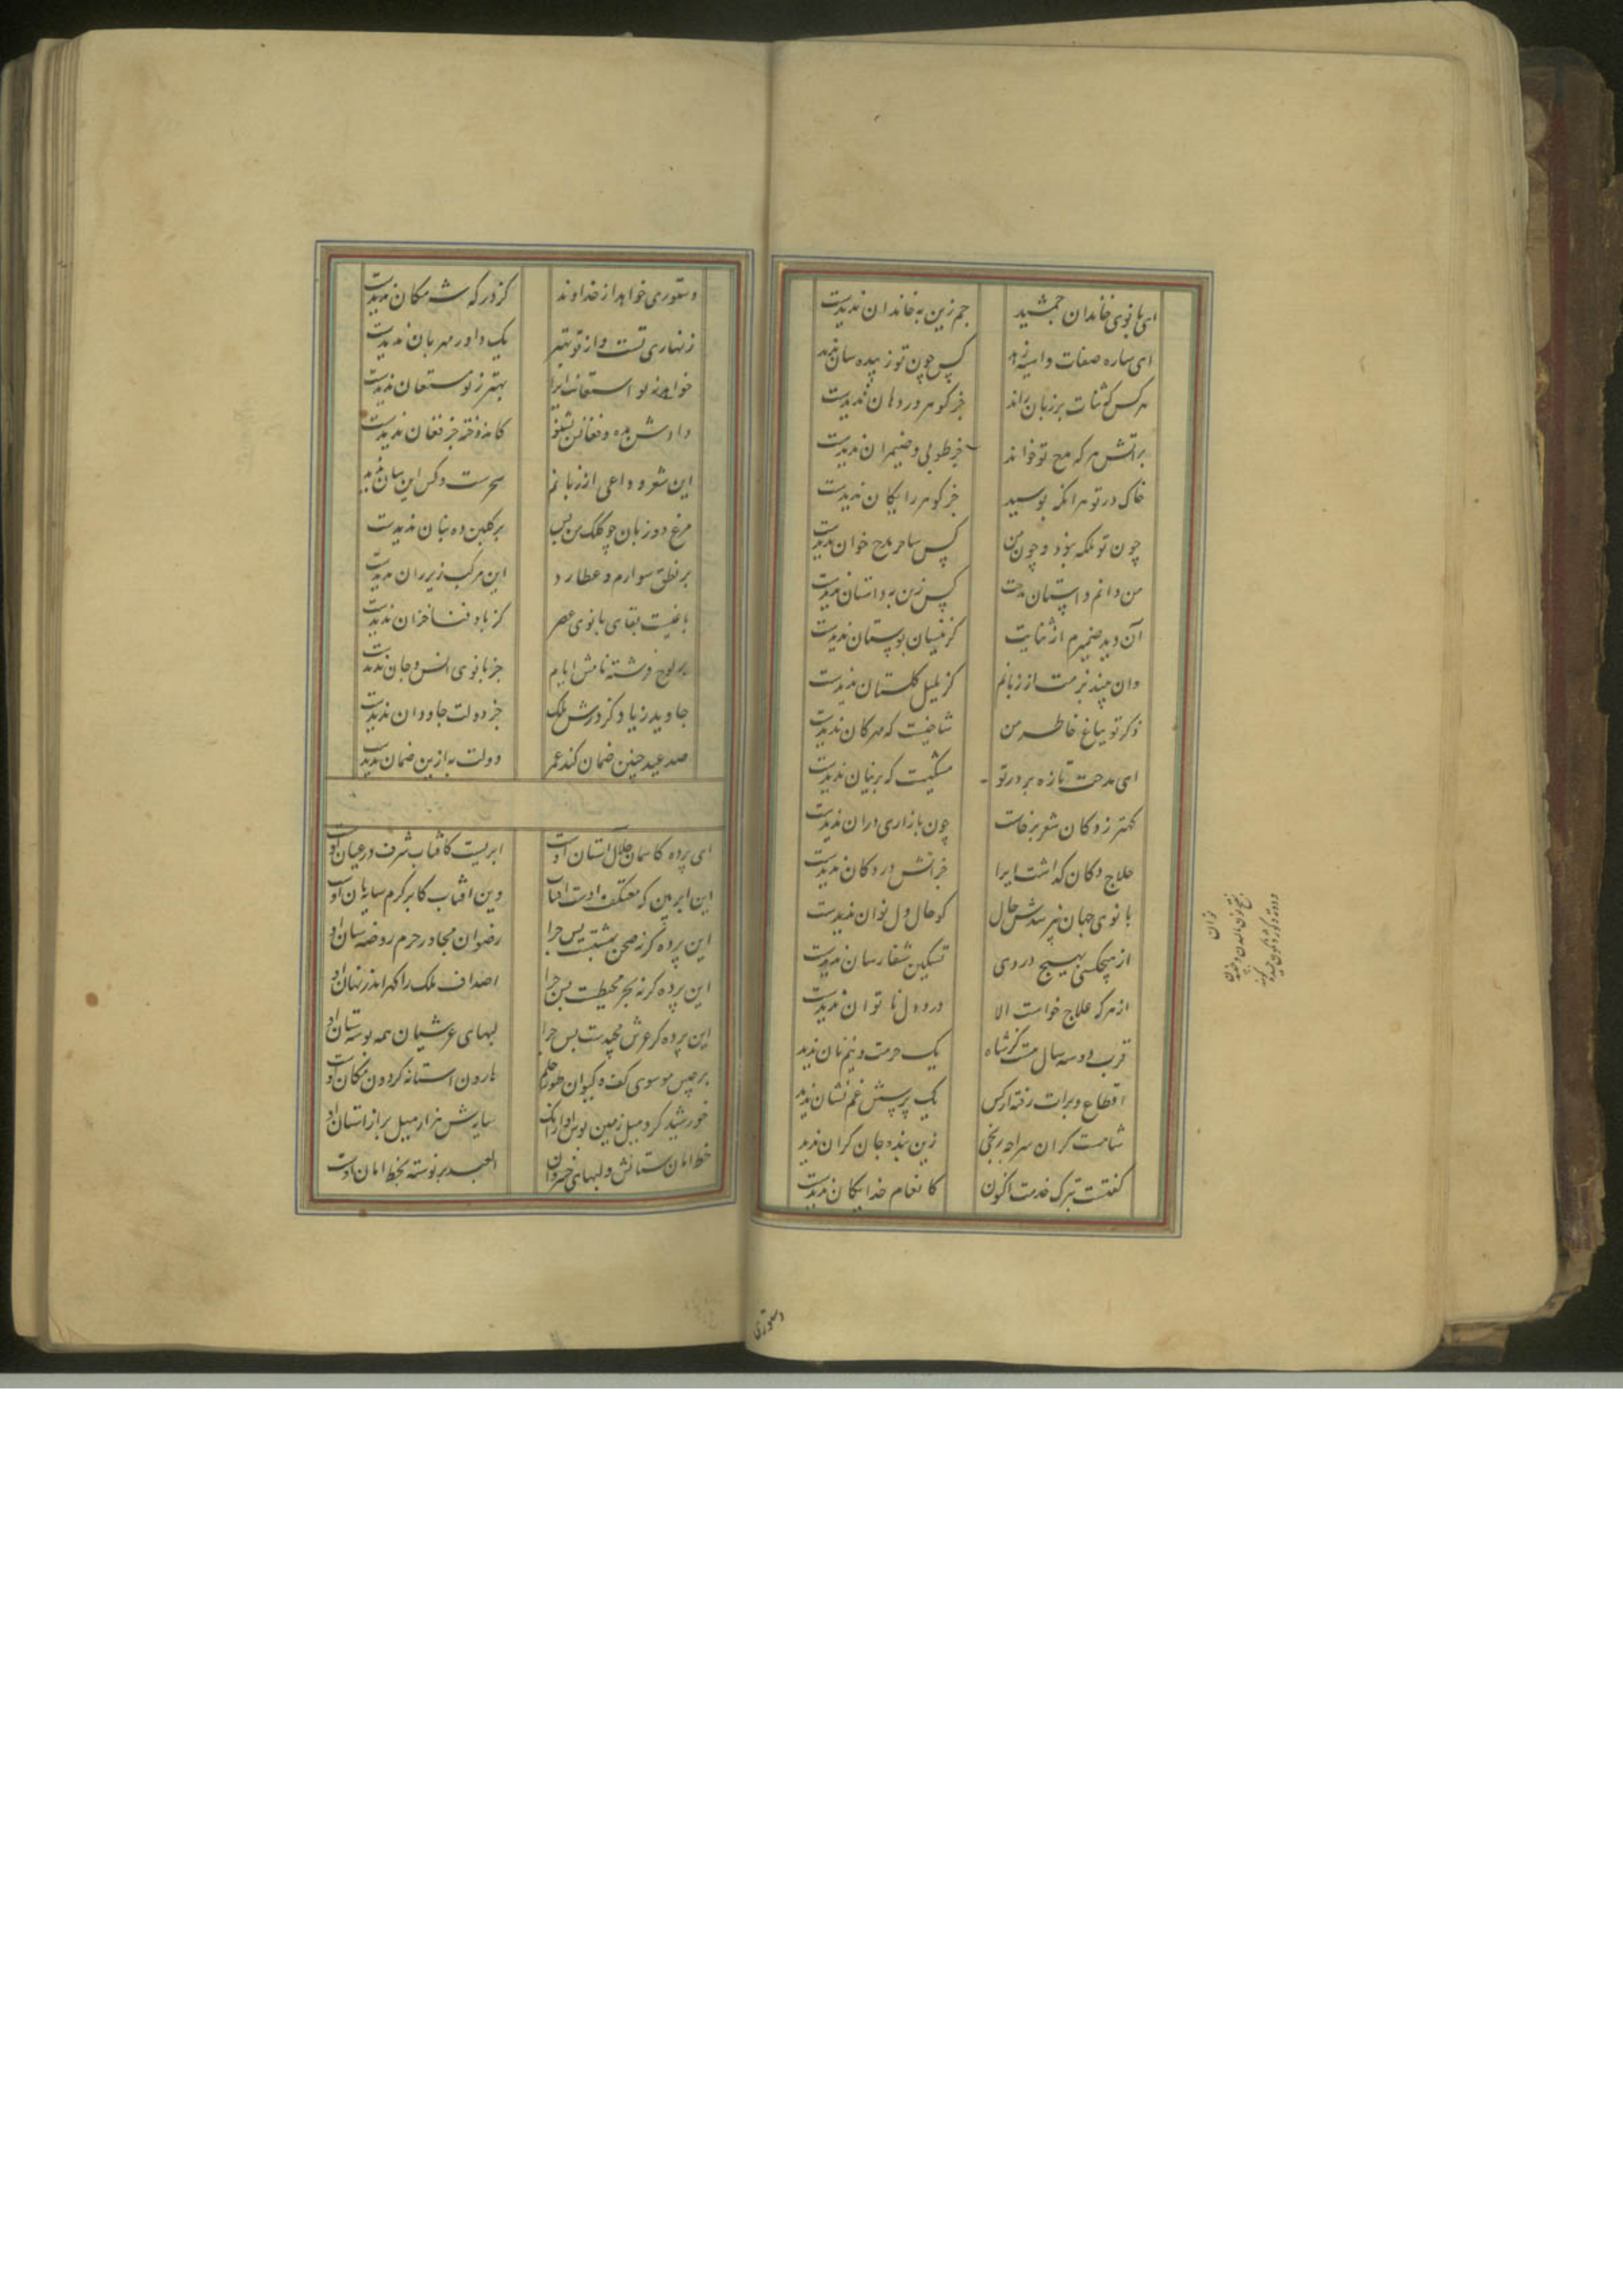 ای بانوی خاندان جمشید جم زین به خاندان ندیدست
ای ساره صفات و آسیه زهد کس چون تو زبیده سان ندید
هرکس که ثنات بر زبان راند جز گوهر در دهان ندیدست
بر آتش هر که مدح تو خواند جز طوبی و ضیمران ندیدست
خاک در تو هر آنکه بوسید جز گوهر رایگان ندیدست
چون تو ملکه نبود و چون من کس ساحر مدح خوان ندیدست
من دانم داستان مدحت کس زین به داستان ندیدست
آن دید ضمیرم از ثنایت کز نیسان بوستان ندیدست
وان بیند بزمت از زبانم کز بلبل گلستان ندیدست
ذکر تو بباغ خاطر من شاخیست که مهرکان ندیدست
ای مدحت تازه بر در تو مسکیست که پرنیان ندیدست
کهتر ز دکان شعر برخاست چون بازاری در آن ندیدست
حلاج دکان گذاشت ایرا جز آتش در دکان ندیدست
بانوی جهان نپرسدش حال کو حال دل نوان ندیدست
از هیچکسی بهیچ دردی تسکین شفا رسان ندیدست
از هر که علاج خواست الا درد دل ناتوان ندیدست
قرب دو سه سال هست کز شاه یک حرمت و نیم نان ندید
اقطاع و برات رفته از کس یک پرسش غم نشان ندید
شاهست گران سر ار چه رنجی زین بنده جان گران ندید
گفتست بترک خدمت اکنون کانعام خدایگان ندیدست
دستوری
دستوری خواهد از خداوند کز درگه شه مکان ندیدست
زنهاری تست و از تو بهتر یک داور مهربان ندیدست
خواهد ز تو استعانت ایرا بهتر ز تو مستعان ندیدست
دادش بده و فغانش بشنو کاندوخته جز فغان ندیدست
این شعر وداعی از زبانم سحرست و کس این بیان ندید
مرغ دو زبان چو کلک من بس بر گلبن ده بنان ندیدست
بر نطق سوارم و عطارد این مرکب زیر ران ندیدست
باغیست بقای بانوی عصر کز باد فنا خزان ندیدست
بر لوح نوشته نامش ایام جز بانوی انس و جان ندید
جاوید زیاد کز درش ملک جز دولت جاودان ندیدست
صد عید چنین ضمان کند عمر دولت به ازین ضمان ندیدست
ای پرده کاسمان جلال آستان اوست ابریست کافتاب شرف در عنان اوست
این ابر بین که معتکف اوست آفتاب وین آفتاب کابر کرم سایبان اوست
این پرده گر نه صحن بهشتست پس چرا رضوان مجاور حرم روضه سان اوست
این پرده گر نه بحر محیطست پس چرا اصداف ملک را گهر اندر نهان اوست
این پرده گر عرش مجیدست پس چرا لبهای عرشیان همه بوسه ستان اوست
برجیس موسوی کف و کیوان طور حلم هارون آستانه گردون مکان اوست
خورشید گرد میل زمین بوس او از آنک سایش هزار میل بر از آستان اوست
خط امان ستانش و لبهای خسروان العبد بر نوشته بخط امان اوست